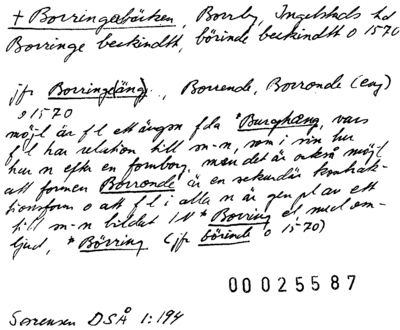 + Borringebäcken, Borrby, Ingelstads hd
Borringe beckindth, börinde beckindth o 1570
jfr Borringe(äng), Borrende, Borronde (eng)
o 1570
möjl är f l ett ängsn f da *Burghæng, vars
f l har relation till m-n, som i sin tur
har n efter en fornborg. men det är också möjl
att formen Borronde är en sekundär kontrak-
tionsform o att f l i alla n är gen pl av ett
till m-n bildat IN *Boring el, med om-
ljud, *Börring (jfr börinde o 1570)
00025587
Sorensen DSÅ 1:194